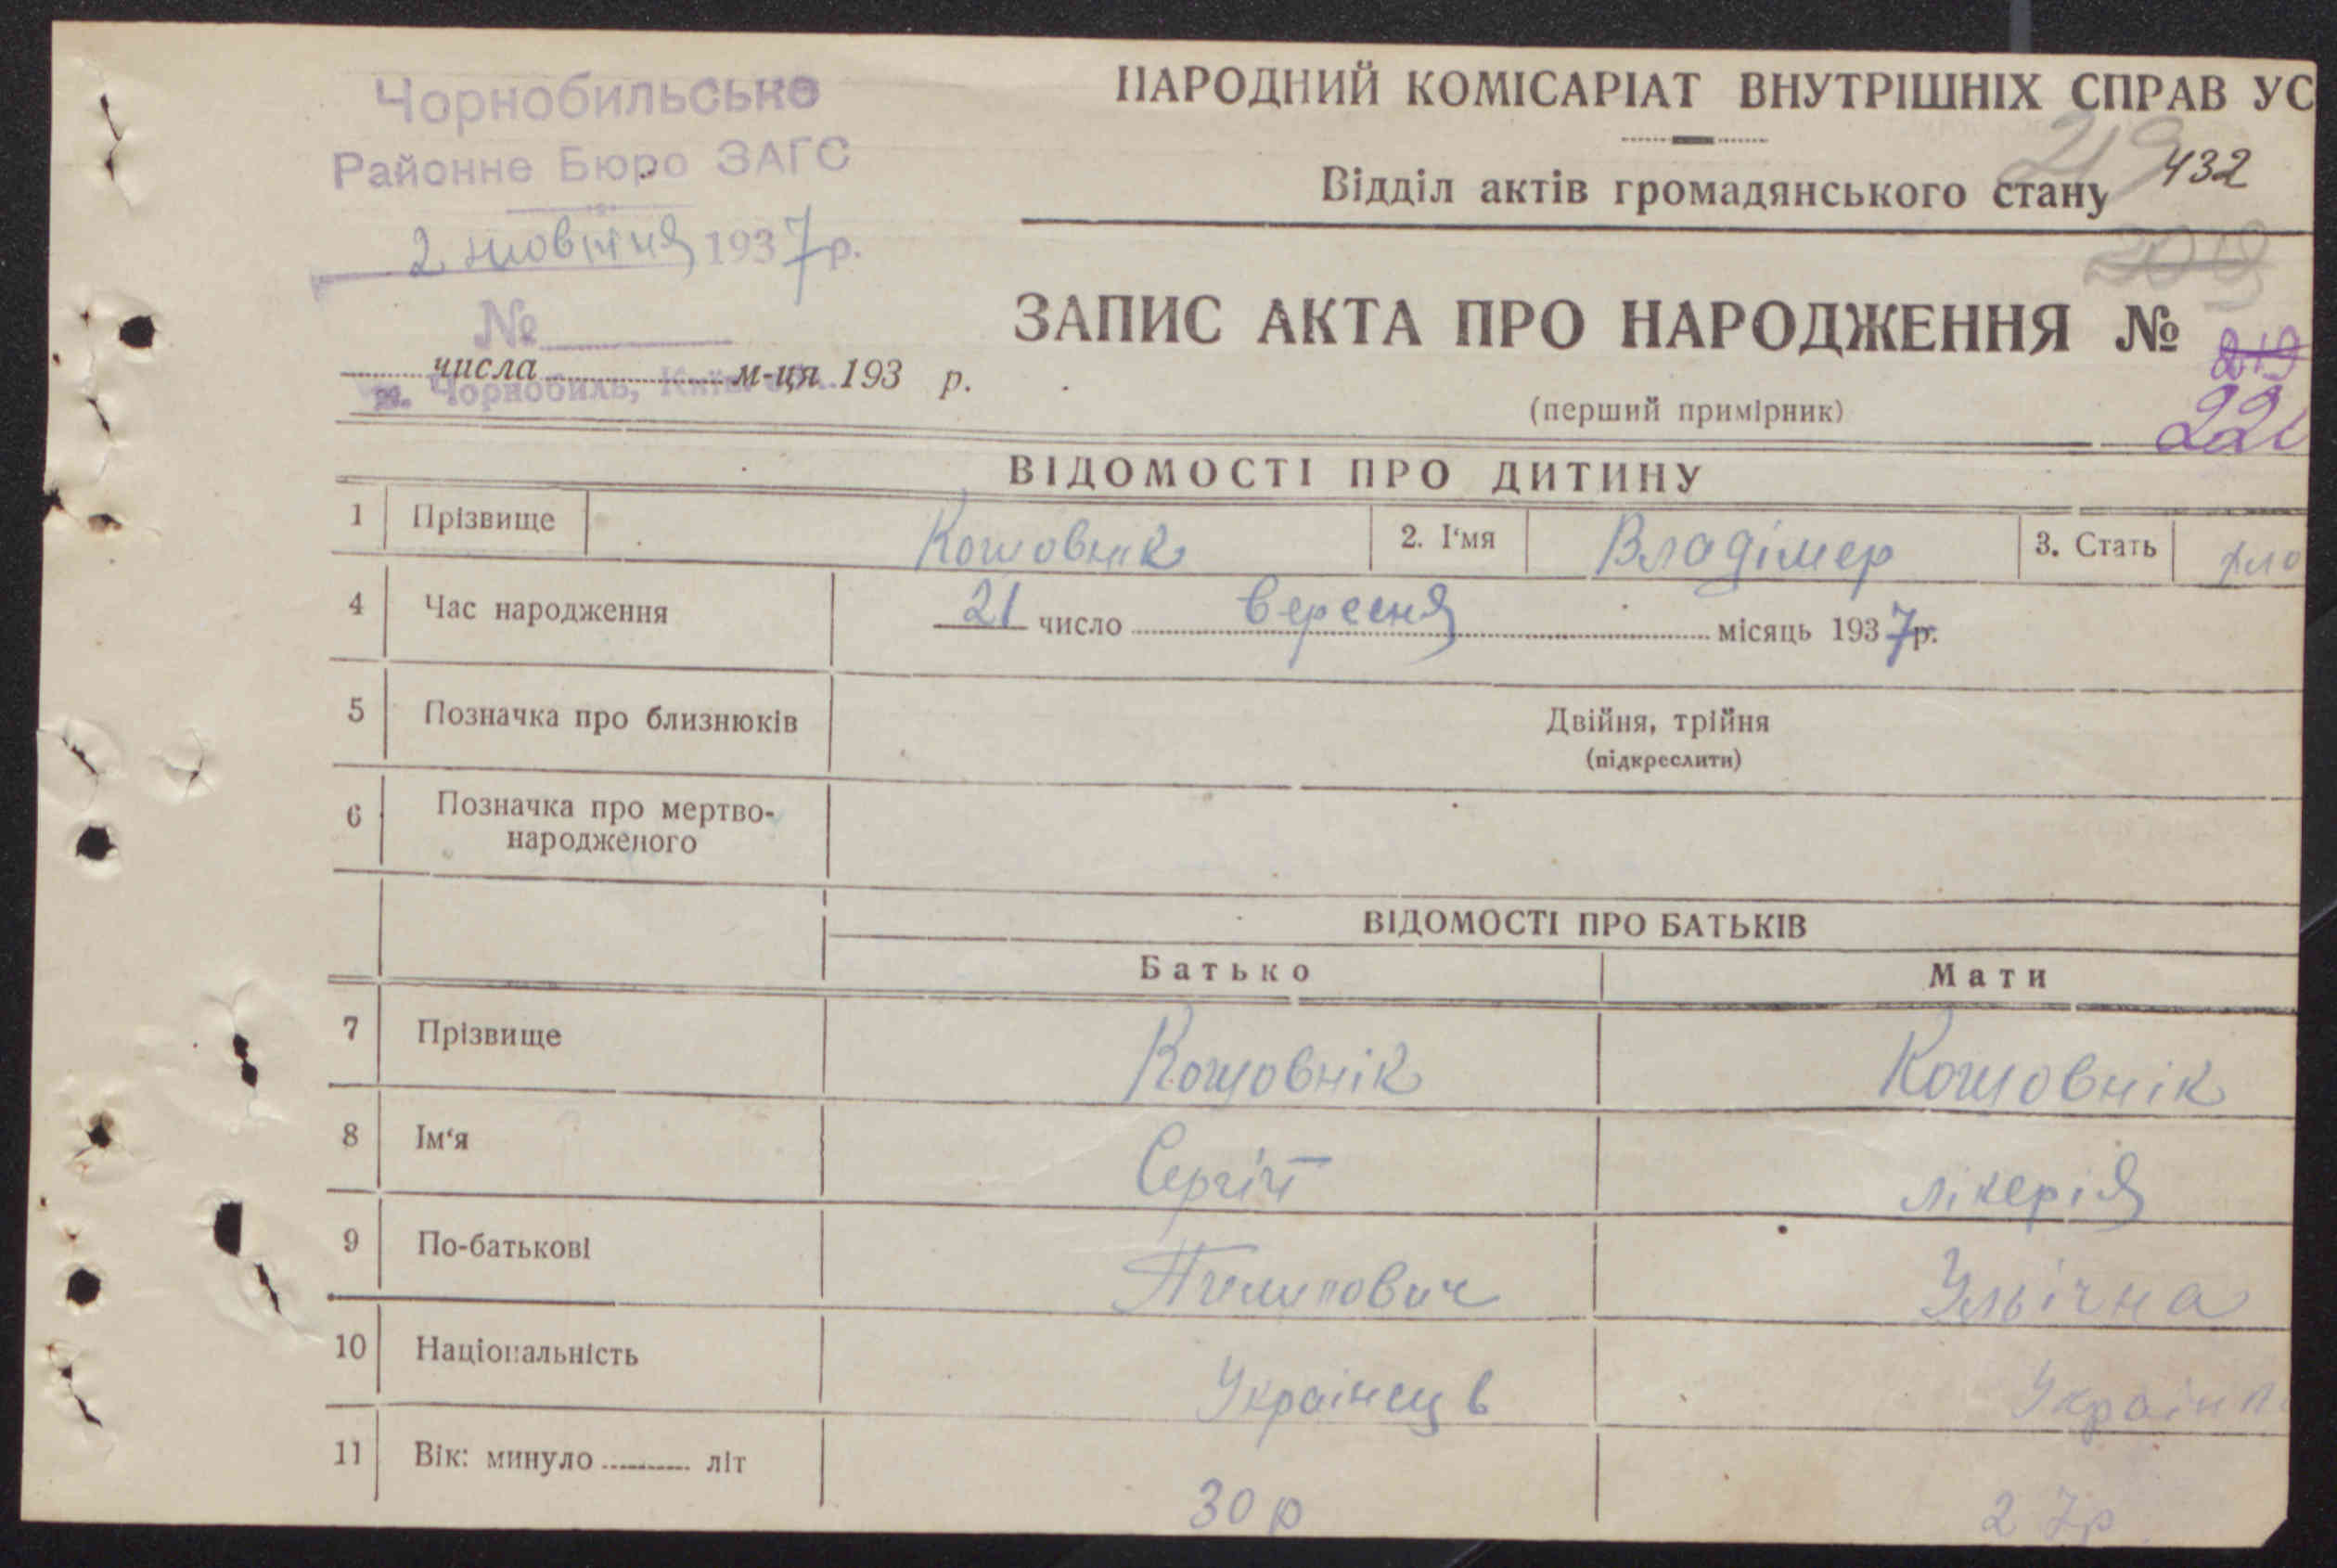 Чорнобильське
Районне Бюро ЗАГС
2 жовтня 1937 р.
№
м. Чорнобиль,
числа м-ця 193 р.
НАРОДНИЙ КОМІСАРІАТ ВНУТРІШНІХ СПРАВ УС
219 432
Відділ актів громадянського стану
ЗАПИС АКТА ПРО НАРОДЖЕННЯ №
219
221
(перший примірник)
ВІДОМОСТІ ПРО ДИТИНУ
1 Прізвище Кошовнік 2. І'мя Владімер 3. Стать хло
4 Час народження 21 число вересня місяць 1937 р.
5 Позначка про близнюків Двійня, трійня
(підкреслити)
6 Позначка про мертво-
народженого
ВІДОМОСТІ ПРО БАТЬКІВ
Батько Мати
7 Прізвище Кошовнік Кошовнік
8 Ім'я Сергій лікерія
9 По-батькові Пилипович Ульічна
10 Національність Українець Україн
11 Вік: минуло літ 30 р 27 р